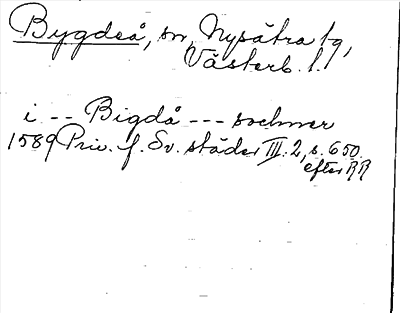 Bygdeå, sn, Nysätra tg,
Västerb. l.
i -- Bigdå --- sochner
1589 Priv. f. Sv. städer III:2, s. 650
efter RR